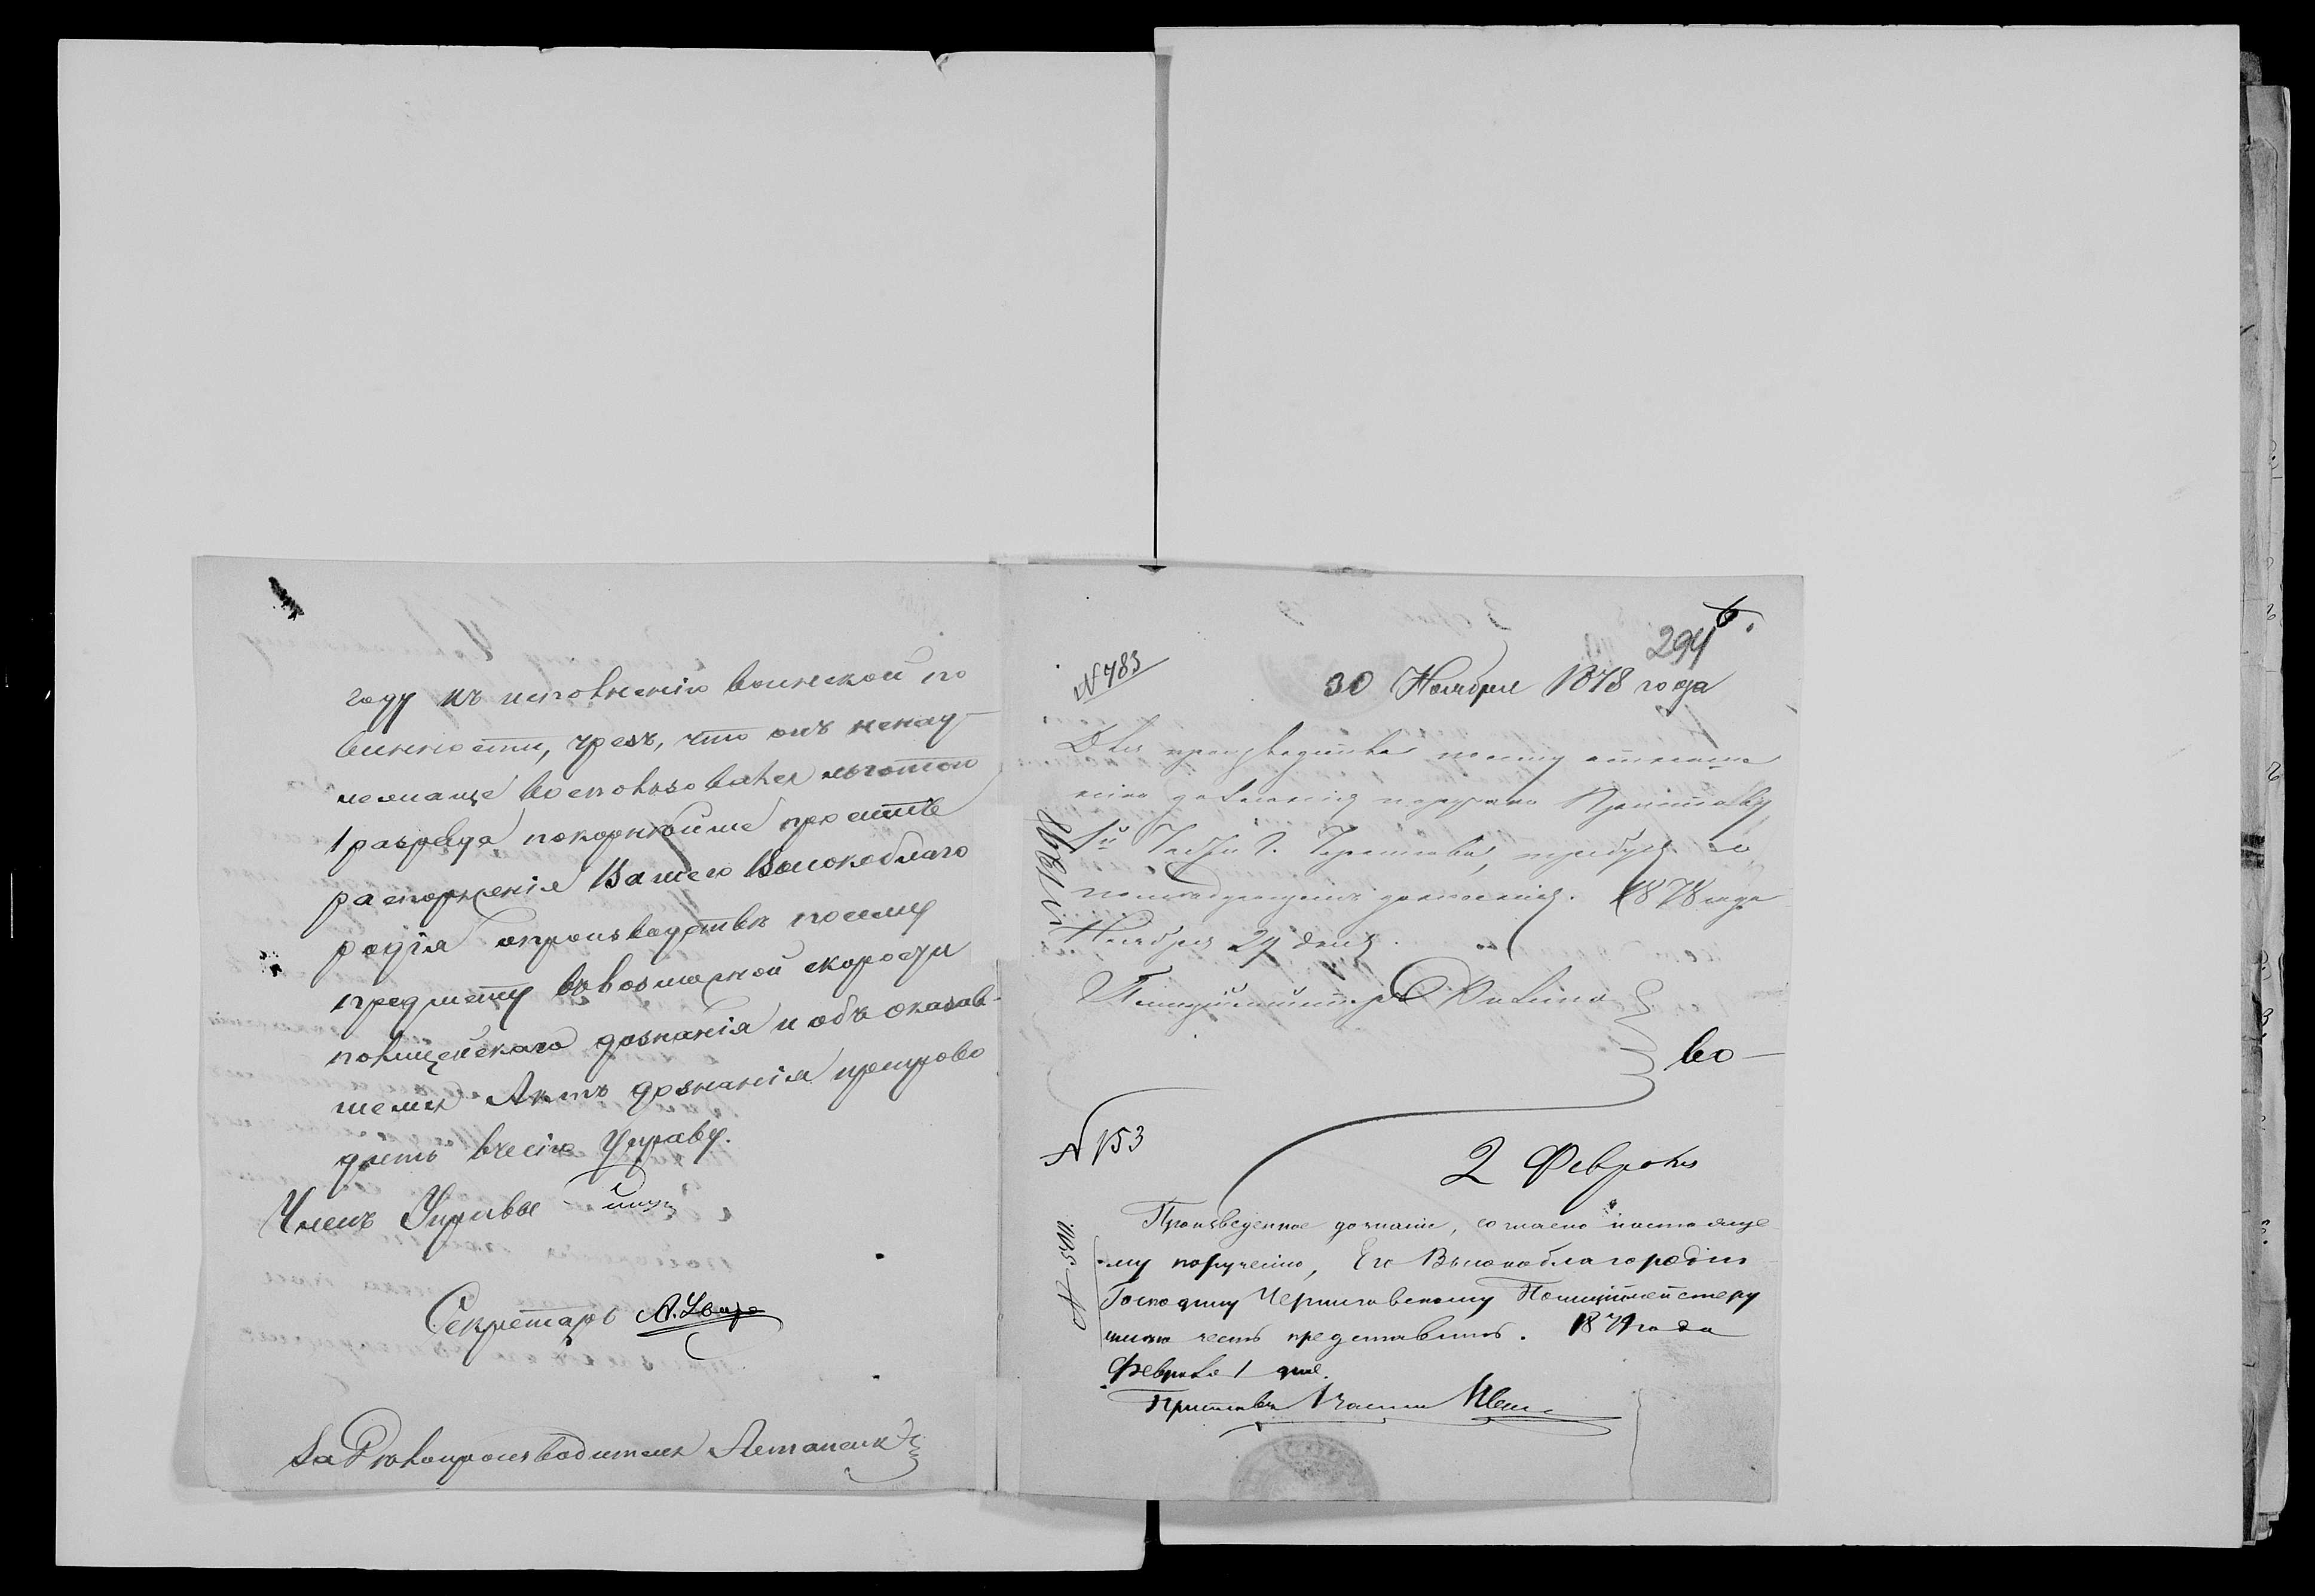 году къ исполненію воинской по
винности, чрезъ, что онъ ненад
лежаще воспользовался льготой
1 разряда покорнѣйше просить
распоряженія Вашего Высокоблаго
родія опроизводствѣ посему
предмету въвозможной скорости
полицейскаго дознанія и объ оказав-
шемся Актъ дознанія препрово
дить въсію Управу.
Членъ Управы
Секретарь
За Дѣлопроизводителя
294
6.
№ 783
30 Ноября 1878 года
Для производства посему отноше
нію дознанія поручаю Приставу
1й Части г. Чернигова, требуя
1878 года
Ноября 29 дня
Полиціймейстеръ
во—
№ 153
2 Февраля
Произведенное дознаніе, согласно настояще
му порученію, Его Высокоблагородію
Господину Черниговскому Полиціймейстеру
имѣю честь представить. 1879 года
Февраля 1 дня.
Приставъ 1 части